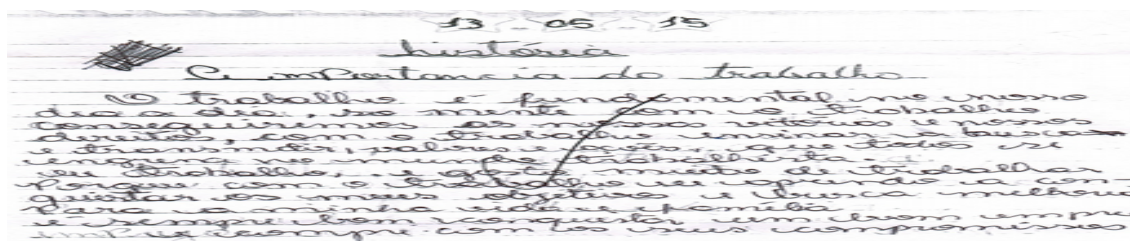 13 . 05 . 15
história
A importancia do trabalho
O trabalho é fundamental no nosso
dia a dia, so mente com o trabalho
conseguiremos as nossas vitória e nossos
direito, com o trabalho ensinar a buscar
e transmitir, valores e ações, que todos se
no mundo trabalhista.
eu trabalho, e gosto muito de trabalhar
Porque com o trabalho eu aprendo a con
quistar os meus objetivo e busca melhoria
Para a minha vida e família.
e sempre bom conquistar um bom empre
cumpri com os seus compromissos